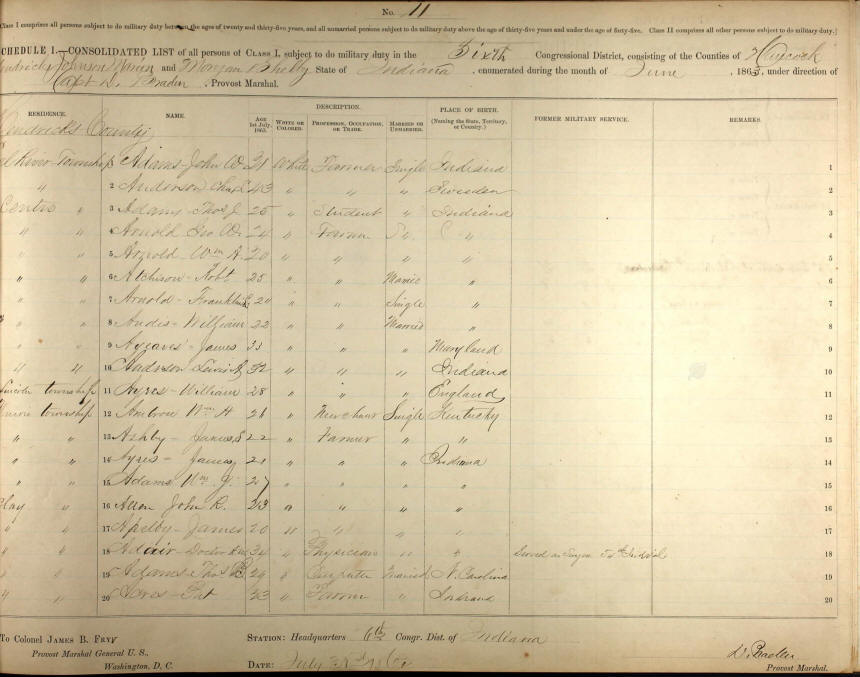 No. 11
Class I comprises all persons subject to do military duty between the ages of twenty and thirty-five years, and all unmarried persons subject to do military duty above the age of thirty-five years and under the age of forty-five. Class II comprises all other persons subject to do military duty.]
CHEDULE I.—CONSOLIDATED LIST of all persons of CLASS I, subject to do military duty in the Sixth Congressional District, consisting of the Counties of
Johnson Marion and Morgan Shelby State of Indiana, enumerated during the month of June, 1863, under direction of
Capt , Provost Marshal.
RESIDENCE. NAME. AGE 1st July, 1863. DESCRIPTION. PLACE OF BIRTH. (Naming the State, Territory, or Country.) FORMER MILITARY SERVICE. REMARKS.
WHITE OR COLORED. PROFESSION, OCCUPATION, OR TRADE. MARRIED OR UNMARRIED.
Hendricks County
el River Township 1 Adams John W. 31 White Farmer Single Indiana 1
" 2 Anderson Chas 43 " " " Sweeden 2
Centre " 3 Adams Thos J. 25 " Student " Indiana 3
" " 4 Arnold Geo W. 24 " Farmer " 4
" " 5 Arnold Wm A. 20 " " " " 5
" " 6 Atchison Robt 25 " " Marrie " 6
" " 7 Arnold Franklin " " Single " 7
" 8 Andis William 22 " " Married " 8
" " 9 James 33 " " " Maryland 9
" " 10 Lewis 32 " " " Indiana 10
Lincoln township 11 Ayres William 28 " " " England 11
township 12 Wm H 26 " Merchant Single Kentucky 12
" " 13 Ashby James S 22 " Farmer " " 13
" " 14 Ayres James 21 " " " Indiana 14
" " 15 Adams Wm J. 27 " " " " 15
Clay " 16 Allen John R. 23 " " " " 16
" " 17 James 20 " " " " 17
" " 18 Adair Doctor 34 " Physician " " Served as 18
" " 19 Adams Thos 29 " Carpenter Married N. Carolina 19
" " 20 Pat 23 " Farmer " 20
To Colonel JAMES B. FRY,
Provost Marshal General U. S.,
Washington, D. C.
STATION: Headquarters 6th Congr. Dist. of Indiana
DATE: July
Provost Marshal.